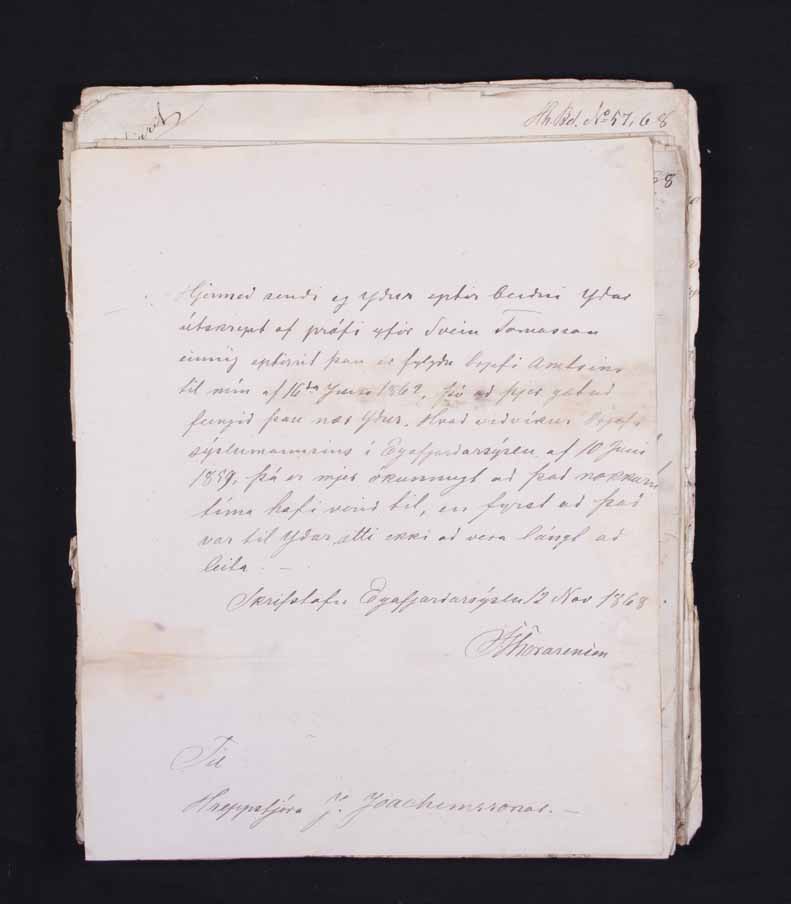 Hh. Bd. No 57, 68
8
Hjermeð sendi eg yður eptir beiðni yðar
útskript af prófi yfir Svein Tomasson
einnig eptirrit þau er fylgdu brefi Amtsins
til mín af 16da Juni 1862, þó að þjer gætuð
fengið þau nær yður. Hvað viðvíkur brjefi
sýslumannsins í Eyafjarðarsýslu af 10 Juni
1859, þá er mjer ókunnugt að það nokkurn
tíma hafi verið til, en fyrst að það
var til yðar, ætti ekki að vera lángt að
leita. —
Skrifstofu Eyafjarðarsýslu 12 Nov 1868.
SThorarensen
Til
Hreppstjóra J. Joachimssonar. —